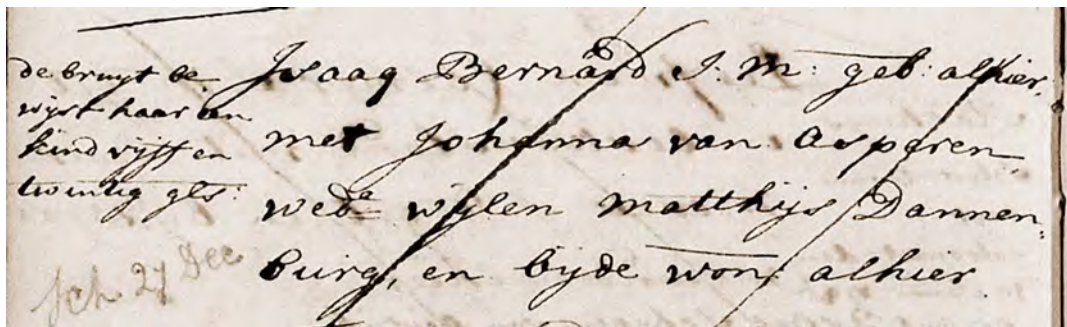 de bruyt be
wijst haar een
kind vijff en
twintig gls:
Isaaq Bernard J: M: geb: alhier,
met Johanna van Asperen,
wede wijlen Matthijs Dannen,,
burg, en bijde won: alhier
sch 27 Dec